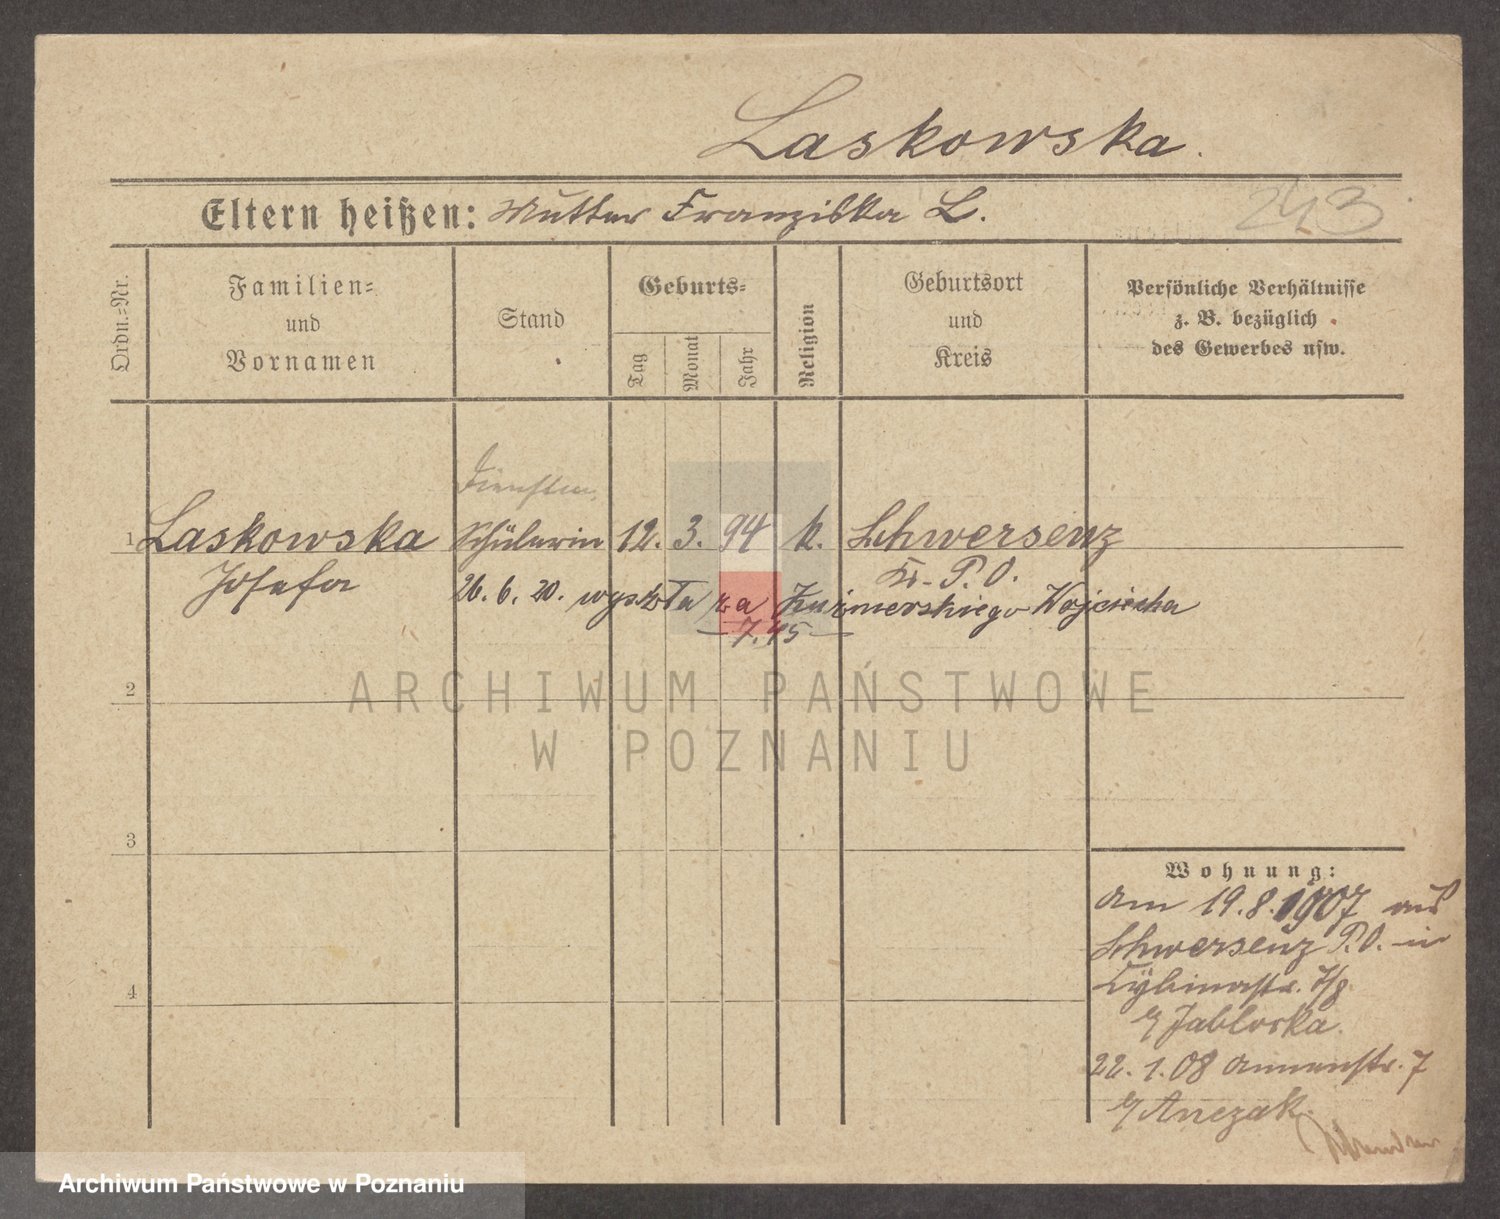 Laskowska.
Eltern heißen: Mutter Franziska L.
243
Ordn.-Nr.
Familien-
und
Vornamen
Stand
Geburts-
Tag
Monat
Jahr
Religion
Geburtsort
und
Kreis
Persönliche Verhältnisse
z. B. bezüglich
des Gewerbes usw.
Dienstm.
1 Laskowska Schülerin 12. 3. 94 k. Schwersenz
Josefa
Kr. P. O.
26. 6. 20. wyszła za Kuźmerskiego Wojciecha
7.45
2
3
4
Wohnung:
Am 19.8.1907 aus
Schwersenz P.O. in
Cybinastr. 7/8
b/ Jablonska.
22. 1. 08 Annenstr. 7
b/ Anczak.
ARCHIWUM PAŃSTWOWE
W POZNANIU
Archiwum Państwowe w Poznaniu